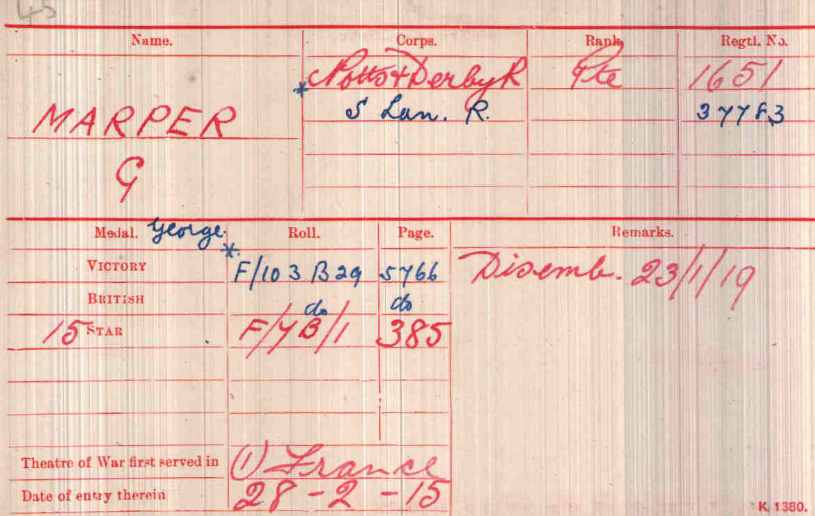 43
Name. Corps. Rank Regtl. No.
* Notts & Derby R Pte 1651
MARPER S Lan. R. 37783
G
Medal. George * Roll. Page. Remarks.
VICTORY F/103 B29 5766 Disemb. 23/1/19
BRITISH do do
15 STAR F/7B/1 385
Theatre of War first served in (1) France
Date of entry therein 28-2-15
K. 1380.